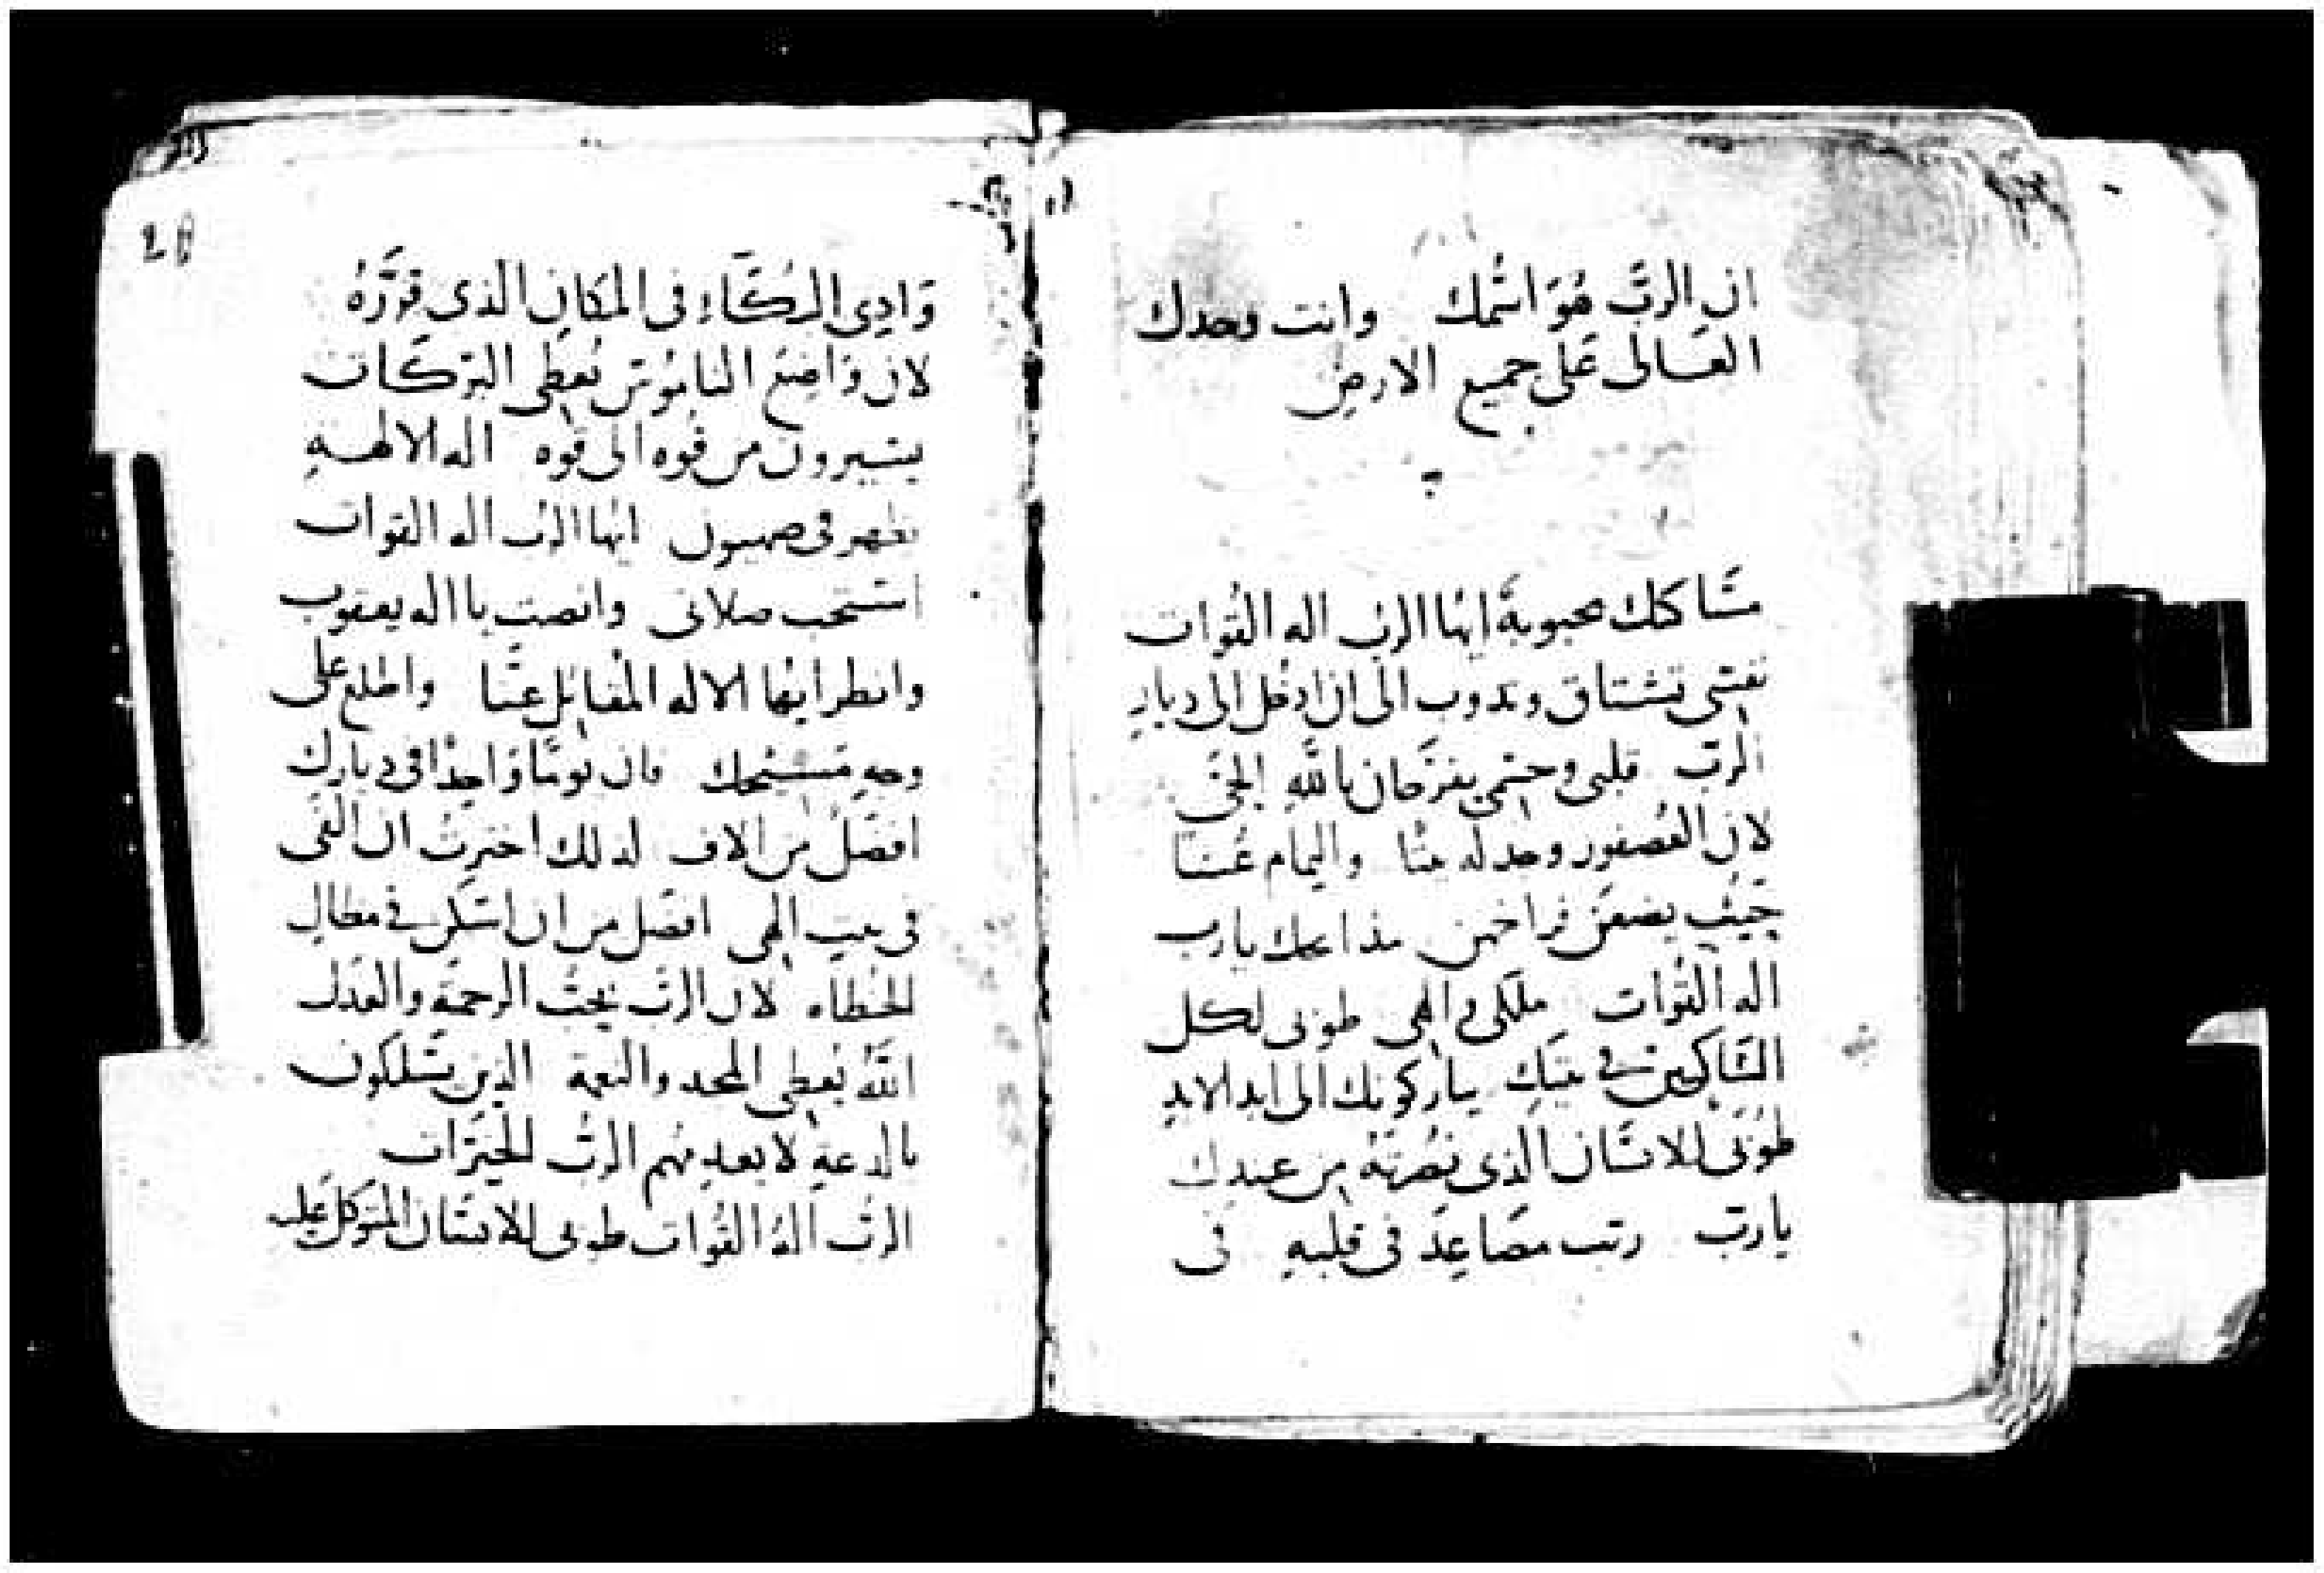 ان الربَّ هُوَ اسْمُك وانت وحدك
العَالى عَلى جميع الارض
مسَاكنك محبوبةٌ ايها الربُ اله القُوات
نفسى تشتاق وتدوب الى ان ادخُل الى ديار
الربّ قلبى وجسمى يفرَحان باللَّهِ الحَى
لان العُصفور وجد له بيتًا واليمام عُشا
حَيثُ يضعَن فراخهن مذابحك يارب
اله القُوات ملكى والهى طوبى لكل
السَّاكنين فى بيتك يباركونك الى ابد الابد
طُوبَى للانسَان الذى نصُرتهُ من عندك
يا ربّ رتب مصَاعِدَ فى قلبهِ فى
وَادِى البُكَاءِ فى المكَان الذى قرَّرهُ
لان وَاضِعَ النامُوس يُعطى البَركَات
يسيرون من قوه الى قوه اله الالهه
يظهر فى صهيون ايها الربُ اله القوات
استجب صلاتى وانصت يا اله يعقوب
وانظر ايها الاله المُقاتل عنّا واطلع على
وجهِ مَسيحك فان يومًا وَاحِدًا فى ديارك
افضَلُ من الاف لذلك اخترتُ ان القى
فى بيت الهى افضَل من ان اسَكن فى مظال
الخطاه لان الربَّ يحبّ الرحمَة والعَدل
اللَّهُ يُعطى المجد والنعمة الذين يسَلكون
بالدعةِ لا يعدمهم الربُّ الخيرَات
الربُّ الهُ القُوات طوبى للانسَان المتوَكل عَليك